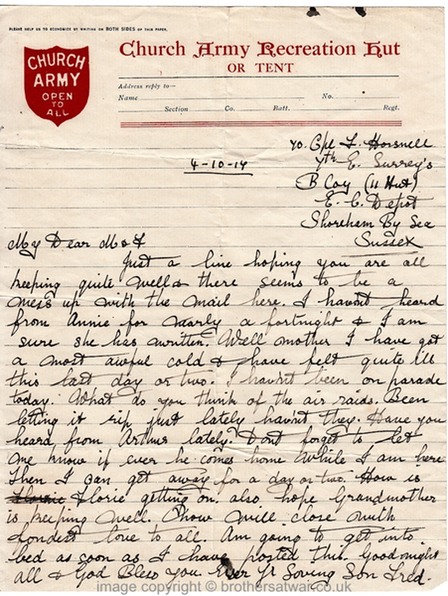 PLEASE HELP US TO ECONOMIZE BY WRITING ON BOTH SIDES OF THIS PAPER.
CHURCH
ARMY
OPEN
TO
ALL
Church Army Recreation Hut
OR TENT
Address reply to—
Name No.
Section Co. Batt. Regt.
Cpl F. Horsnell
7th E. Surrey's
B Coy (11 Hut)
E. C. Depot
Shoreham By Sea
Sussex
4-10-17
My Dear M & F
Just a line hoping you are all
keeping quite well & there seems to be a
mess up with the mail here. I havnt heard
from Annie for nearly a fortnight & I am
sure she has written. Well mother I have got
a most awful cold & have felt quite ill
this last day or two. I havn't been on parade
today. What do you think of the air raids. Been
letting it rip just lately havnt they. Have you
heard from Arthur lately. Dont forget to let
me know if ever he comes home while I am here
then I can get away for a day or two. How is
Florie getting on. also hope Grandmother
is keeping well. Now will close with
fondest love to all. Am going to get into
bed as soon as I have posted this. Goodnight
all & God Bless you Ever Yr Loving Son Fred.
image copyright © brothersatwar.co.uk